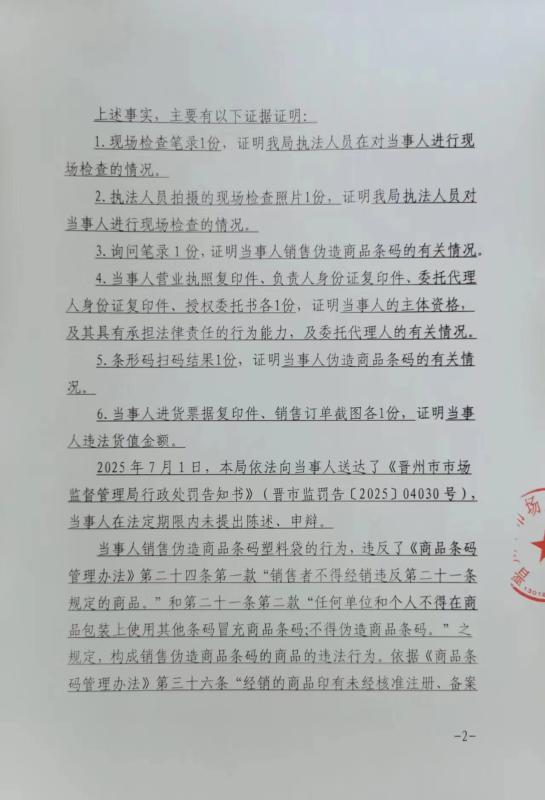 上述事实，主要有以下证据证明：
1. 现场检查笔录1份，证明我局执法人员在对当事人进行现
场检查的情况。
2. 执法人员拍摄的现场检查照片1份，证明我局执法人员对
当事人进行现场检查的情况。
3. 询问笔录 1 份，证明当事人销售伪造商品条码的有关情况。
4. 当事人营业执照复印件、负责人身份证复印件、委托代理
人身份证复印件、授权委托书各1份，证明当事人的主体资格，
及其具有承担法律责任的行为能力，及委托代理人的有关情况。
5. 条形码扫码结果1份，证明当事人伪造商品条码的有关情
况。
6. 当事人进货票据复印件、销售订单截图各1份，证明当事
人违法货值金额。
2025 年 7 月 1 日，本局依法向当事人送达了《晋州市市场
监督管理局行政处罚告知书》（晋市监罚告〔2025〕04030 号），
当事人在法定期限内未提出陈述、申辩。
当事人销售伪造商品条码塑料袋的行为，违反了《商品条码
管理办法》第二十四条第一款“销售者不得经销违反第二十一条
规定的商品。”和第二十一条第二款“任何单位和个人不得在商
品包装上使用其他条码冒充商品条码;不得伪造商品条码。”之
规定，构成销售伪造商品条码的商品的违法行为。依据《商品条
码管理办法》第三十六条“经销的商品印有未经核准注册、备案
场
晋
13018
-2-